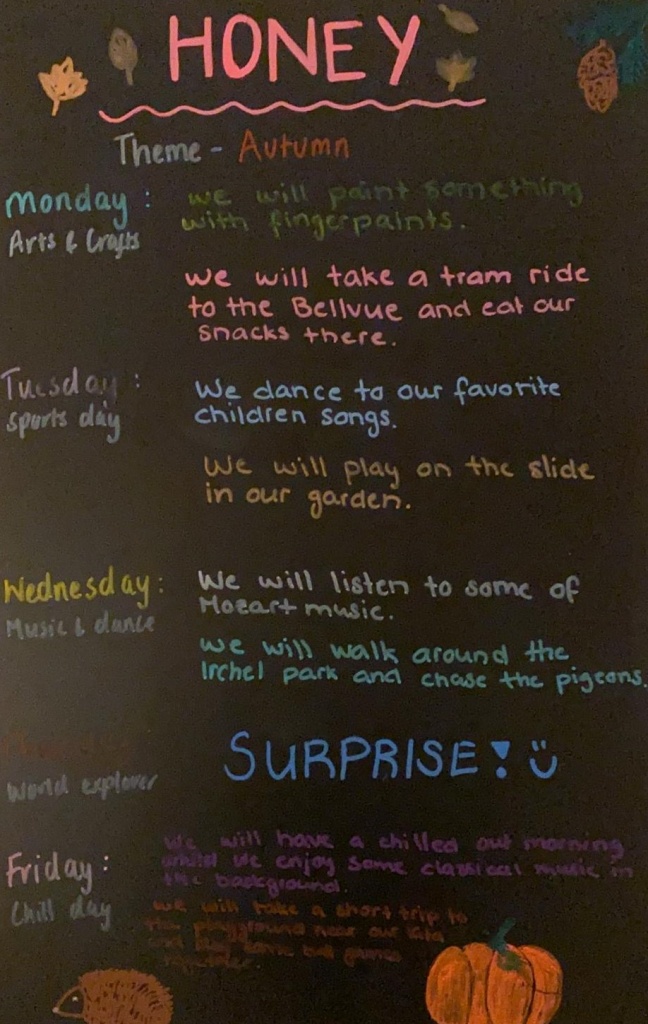 HONEY
Theme - Autumn
Monday :
Arts & Crafts
we will paint something
with fingerpaints.
we will take a tram ride
to the Bellvue and eat our
snacks there.
Tuesday :
sports day
We dance to our favorite
children songs.
We will play on the slide
in our garden.
Wednesday :
Music & dance
We will listen to some of
Mozart music.
we will walk around the
Irchel park and chase the pigeons.
Thursday :
World explorer
SURPRISE! :)
Friday :
Chill day
we will have a chilled out morning
whilst we enjoy some classical music in
the background.
we will take a short trip to
the playground near our Kita
and play some ball games